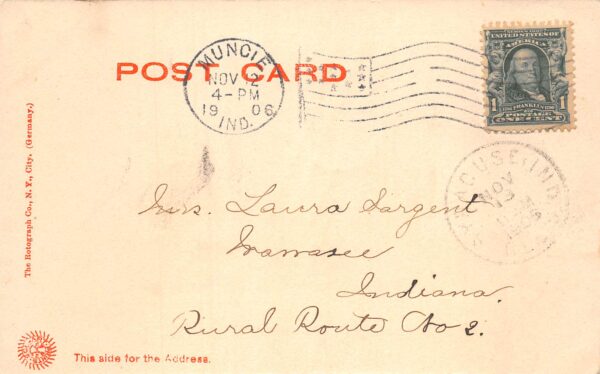 POST CARD
MUNCIE
NOV 12
4-PM
1906
IND.
SERIES 1902
UNITED STATES OF AMERICA
1 FRANKLIN 1
POSTAGE
ONE CENT
SYRACUSE, IND.
NOV
1906
Mrs. Laura Sargent
Wawasee
Indiana.
Rural Route No 2.
The Rotograph Co., N. Y., City. (Germany.)
This side for the Address.